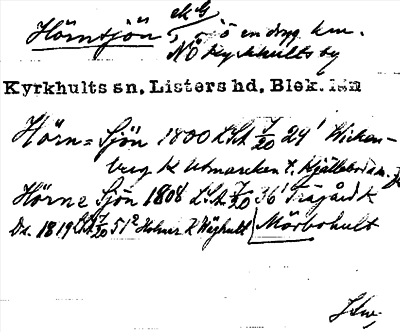 Hörnsjön sjö en dryg km.
NÖ Kyrkhults by
Kyrkhults sn, Listers hd, Blek. län
Hörn=Sjön 1800 LSA 7/20 24¹ Wicken-
berg K Utmarcken t.
Hörne Sjön 1808 LSA 7/20 36¹ Trägård K
Do. 1819 LSA 7/20 51² Holmar K Wäghult Mörbohult